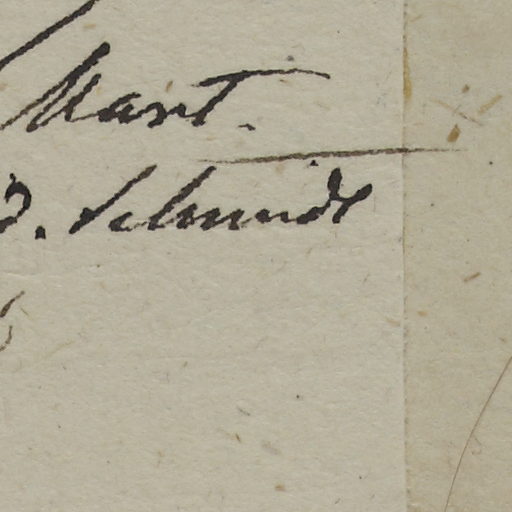 Mart.
D. Schmidt